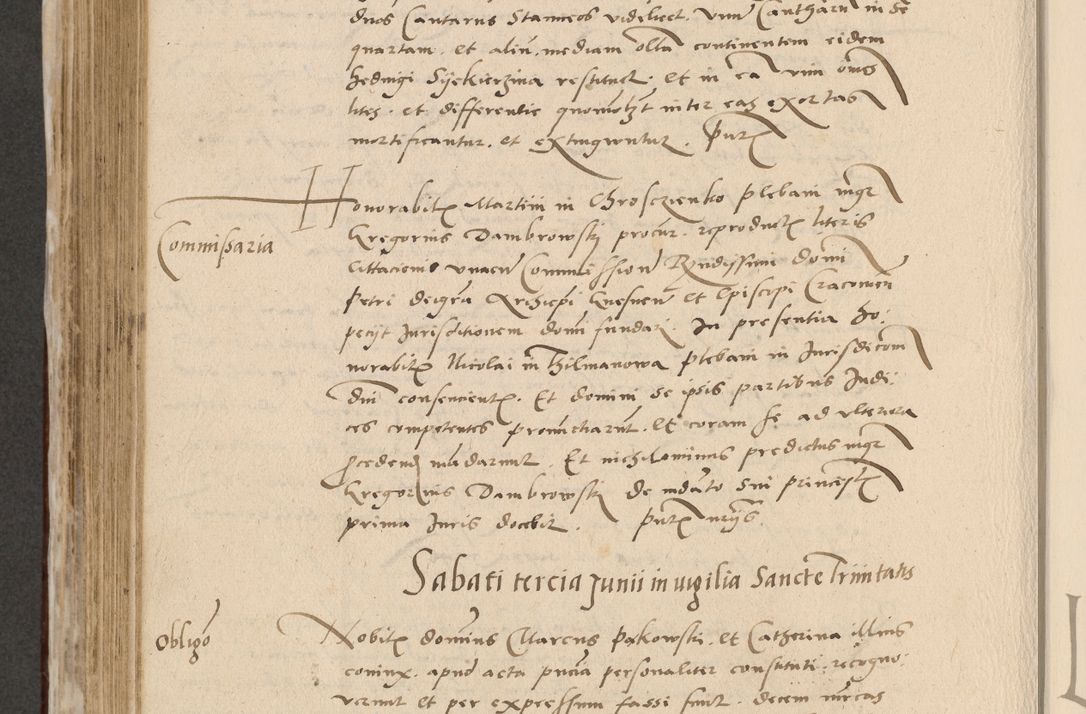 duos Cantarus Stanneos videlicet. vnu Cantharu in se
quartam. et aliu. mediam olta continentem eidem
hedvigi Syekierzina restituet. Et in ea rem omes
lites. et differentie quomolzt inter eas exortas
mortificantur. et extingwntur. Pntx
Honorabilx Martini in Chrosczienko plebani mgr
Commissaria
Gregorius Dambrowski procur. reproductx literis
Cittacionis vnacu Commission Rndissimi domi
Petri deigra Archiepi Gnesnen et Episcopi Cracovien
petijt Jurisditionem domi fundari. In presentia ho:
norabilx Nicolai in Tilmanowa plebani in Jurisdicom
dni consencientx. Et domini se ipsis partibus Judi:
ces competentes pronuctiarut. Et coram se ad vlteriora
procedend madarunt. Et nichilominus predictus mgr
Gregorius Dambrowski de mdato sui
prima Juris docebit. Pntx
Sabati tercia Junii in vigilia Sancte Trinitatis
Obligo
Nobilx dominus Marcus Pakowski. et Catherina illius
coniux. apud acta pncia personaliter constituti. recogno:
verunt et per expressum fassi sunt. decem mrcas